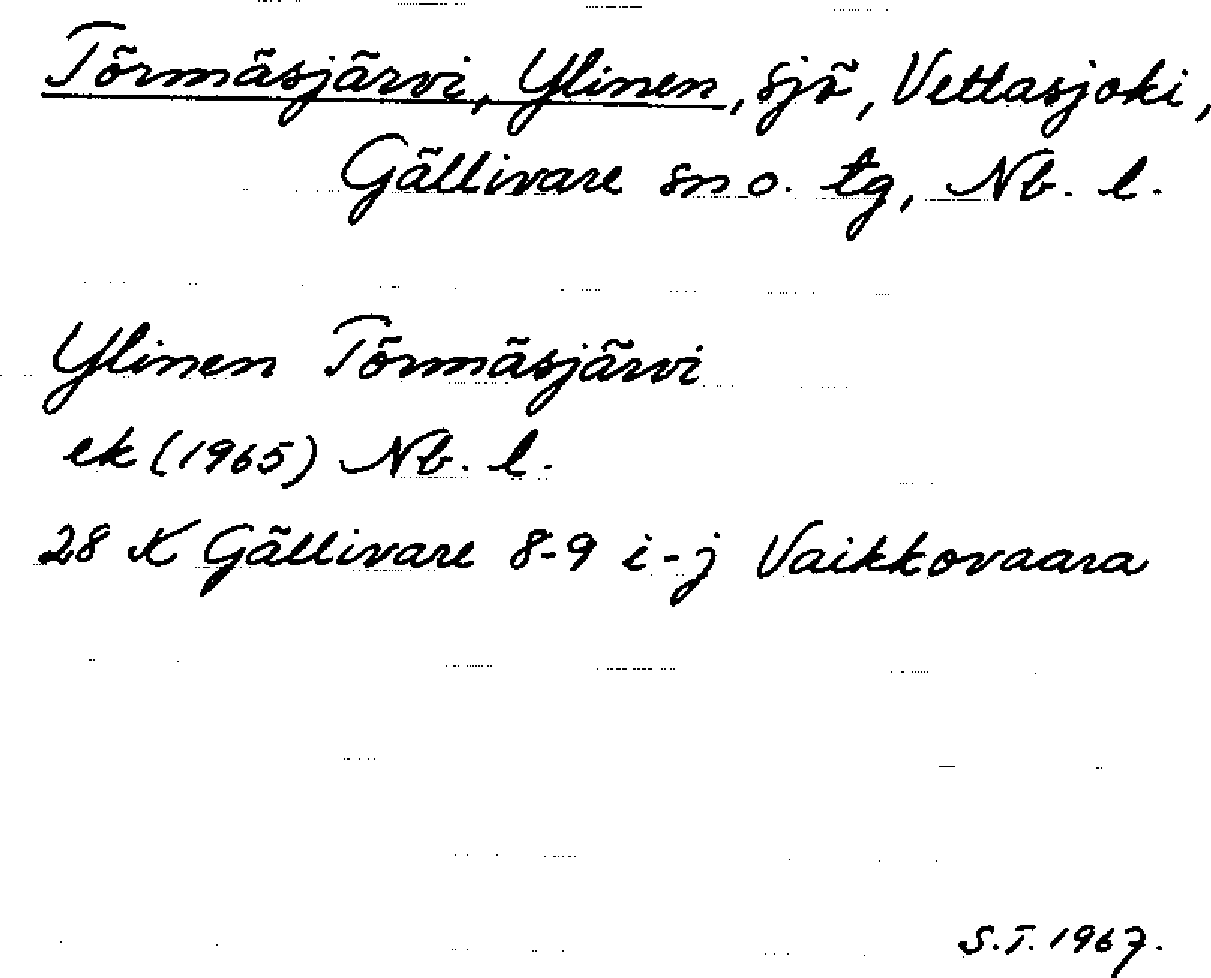 Törmäsjärvi, Ylinen, sjö, Vettasjoki,
Gällivare sn o. tg, Nb. l.
Ylinen Törmäsjärvi
ek (1965) Nb. l.
28 K Gällivare 8-9 i-j Vaikkovaara
S.T. 1967.